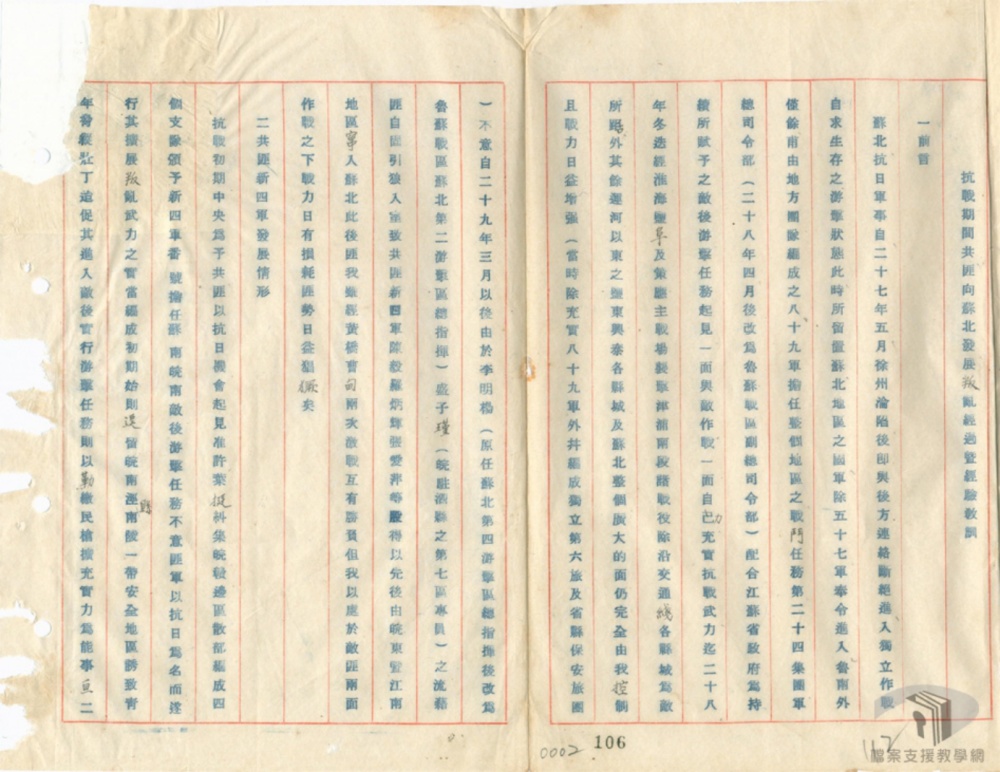 抗戰期間共匪向蘇北發展叛亂經過暨經驗教訓
一前言
蘇北抗日軍事自二十七年五月徐州淪陷後即與後方連絡斷絕進入獨立作戰
自求生存之游擊狀態此時所留置蘇北地區之國軍除五十七軍奉令進入魯南外
僅餘甫由地方團隊編成之八十九軍擔任整個地區之戰鬥任務第二十四集團軍
總司令部（二十八年四月後改為魯蘇戰區副總司令部）配合江蘇省政府為持
續所賦予之敵後游擊任務起見一面與敵作戰一面自力充實抗戰武力迄二十八
年冬迭經淮海鹽阜及策應主戰場襲擊津浦南段諸戰役除沿交通綫各縣城為敵
所踞外其餘運河以東之鹽東興泰各縣城及蘇北整個廣大的面仍完全由我控制
且戰力日益增強（當時除充實八十九軍外并編成獨立第六旅及省縣保安旅團
）不意自二十九年三月以後由於李明楊（原任蘇北第四游擊區總指揮後改為
魯蘇戰區蘇北第二游擊區總指揮）盛子瑾（皖駐泗縣之第七區專員）之流藉
匪自固引狼入室致共匪新四軍陳毅羅炳輝張愛萍等股得以先後由皖東暨江南
地區竄入蘇北此後匪我雖經黃橋曹甸兩次激戰互有勝負但我以處於敵匪兩面
作戰之下戰力日有損耗匪勢日益猖獗矣
二共匪新四軍發展情形
抗戰初期中央為予共匪以抗日機會起見准許葉挺糾集皖贛邊區散部編成四
個支隊頒予新四軍番號擔任蘇南皖南敵後游擊任務不意匪軍以抗日為名而遂
行其擴展叛亂武力之實當編成初期始則逗留皖南涇縣南陵一帶安全地區勝致青
年發經數丁迨促其進入敵後實行游擊任務則以勒繳民槍擴充實力為能事亘二
106
0002
117
檔案支援教學網